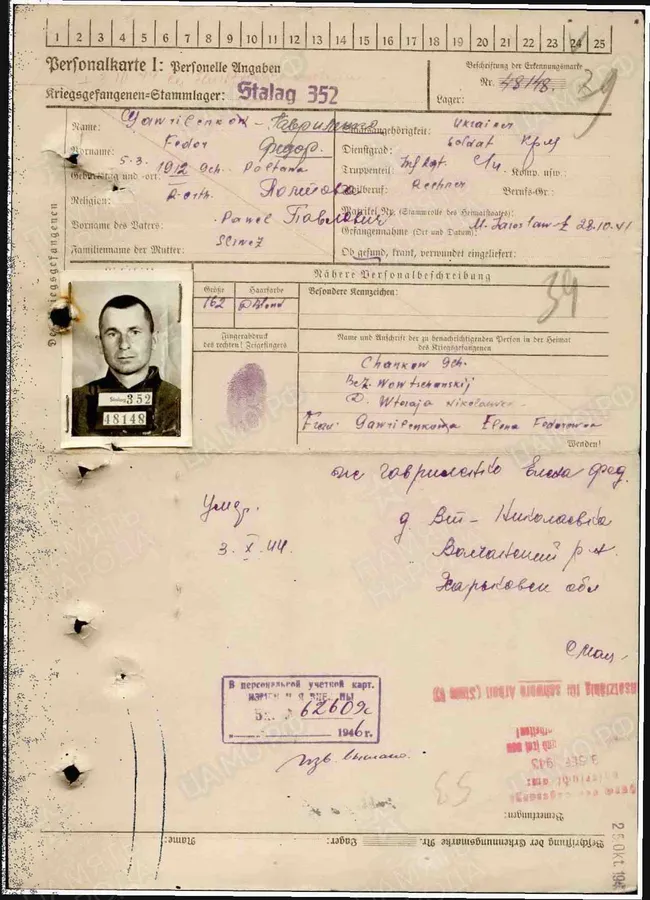 1 2 3 4 5 6 7 8 9 10 11 12 13 14 15 16 17 18 19 20 21 22 23 24 25
Personalkarte I: Personelle Angaben
Beschriftung der Erkennungsmarke
Nr. 48148.
Kriegsgefangenen=Stammlager: Stalag 352
Lager:
39
Name: Gawrilenkow - Гавриленко
Staatsangehörigkeit: Ukrainer
Vorname: Fedor Федор.
Dienstgrad: Soldat Кр-ц
Truppenteil: Inf. Rgt. Komp. usw.:
Geburtstag und -ort: 5.3. 1912 Poltawa
Полтава
Zivilberuf: Berufs-Gr.:
Religion: R-orth.
Matrikel Nr. (Stammrolle des Heimatstaates):
Vorname des Vaters: Pawel Павлович
Gefangennahme (Ort und Datum): M. Jaroslawez 28.10.41
Familienname der Mutter:
Ob gesund, krank, verwundet eingeliefert:
Des Kriegsgefangenen
Nähere Personalbeschreibung
Größe Haarfarbe
Besondere Kennzeichen:
162 D. Blond
39
Fingerabdruck
des rechten! Zeigefingers
Name und Anschrift der zu benachrichtigenden Person in der Heimat
des Kriegsgefangenen
Charkow
Bez. Woltschanskij
D. Wtoraja Nikolaewka
Frau: Gawrilenkowa Elena Fedorowna
Wenden!
Stalag 352
48148
Гавриленко Елена Фед.
Умер.
3. X. 44
д. Вт- Николаевка
Волчанский р-н.
Харьковск обл
В персональной учетной карт.
ИЗМЕНЕНИЯ ВНЕСЕНЫ
62609с
1946 г.
изв. выслано.
Einsatzfähig für schwere Arbeit
3. SEP. 1943
53
Bemerkungen:
Beschriftung der Erkennungsmarke Nr.
Lager:
Name:
25 Okt. 194
ЦАМО РФ
ПАМЯТЬ НАРОДА